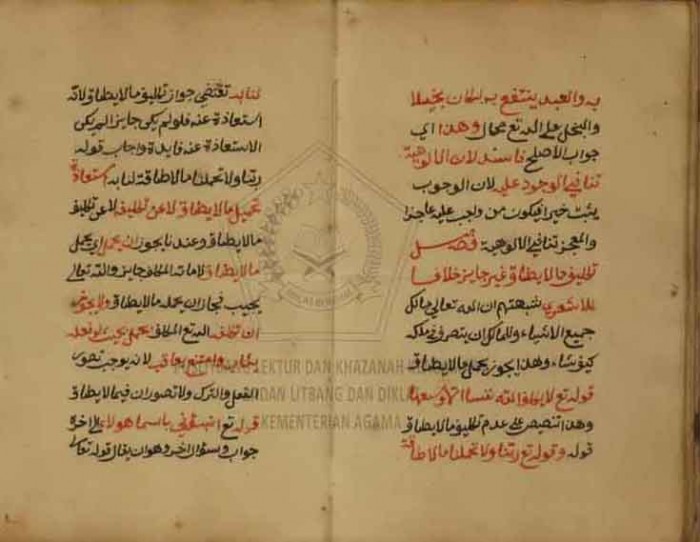 به والعبد ينتفع به لكان بخيلا
والبخل على الله تع محال وهذا اي
جواب الاصلح فاسد لان الالوهية
تنافي الوجود عليه لان الوجوب
يثبت خيرا فيكون من وجب عليه عاجزا
والعجز تنافي الالوهية فصل
تكليف مالايطاق غير جايز خلافا
للاشعري شبهتهم ان الله تعالى مالك
جميع الاشياء وللمالك ان يتصرف في ملكه
كيف يشاء وهذا يجوز تحمل مالايطاق
قوله تع لايكلف الله نفسا الا وسعها
وهذا تنصيص على عدم تكليف مالايطاق
قوله وقوله تع ربنا ولا تحملنا مالا طاقة
لنا به تقتضي جواز تكليف مالايطاق لانه
استعاذة عنه فلو لم يكن جايز الم يكن
الاستعاذة عنه فايدة واجاب قوله
ربنا ولا تحملنا مالا طاقة لنا به استعاذة
تحميل مالايطاق لا عن تكليفه لا عن تكليف
مالايطاق وعندنا يجوز ان يحمل اي يحمل
مالايطاق جايز والله تعالى
يجيب فجاز ان يحمله مالايطاق ولا يجوز
ان تكلف الله تع المكلف بحمل بحيث لو فعله
يثاب وامتنع يعاقب لانه يوجب تصور
الفعل والترك ولا تصور ان فيما لايطاق
قوله تع انبئوني باسماء هولاء الى اخره
جواب وسؤال اخر وهو ان يقال قوله تعالى
PUSLITBANG LEKTUR DAN KHAZANAH
BADAN LITBANG DAN DIKLAT
KEMENTERIAN AGAMA